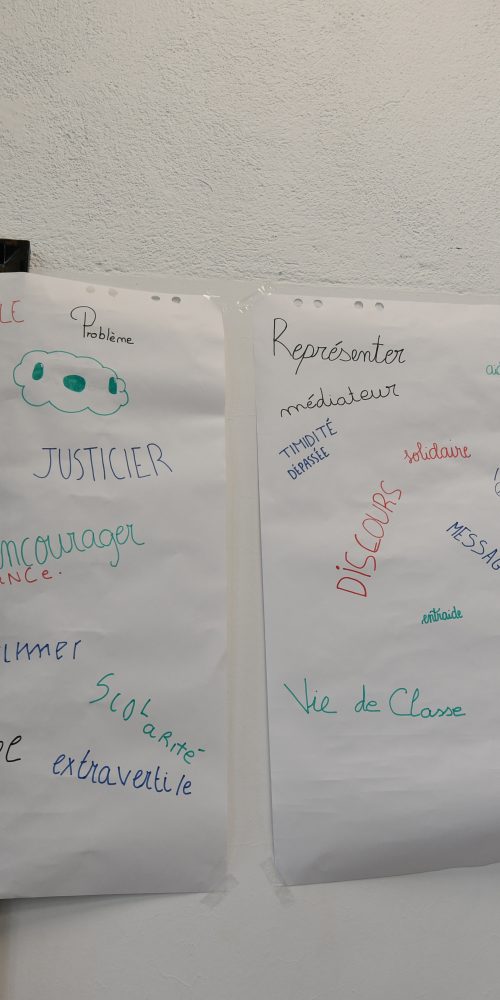 LE
Problème
JUSTICIER
ncourager
NCe.
SCOLARité
extravertile
Représenter
médiateur
TIMIDITÉ
DÉPASSÉE
solidaire
DISCOURS
MESSAG
entraide
Vie de Classe